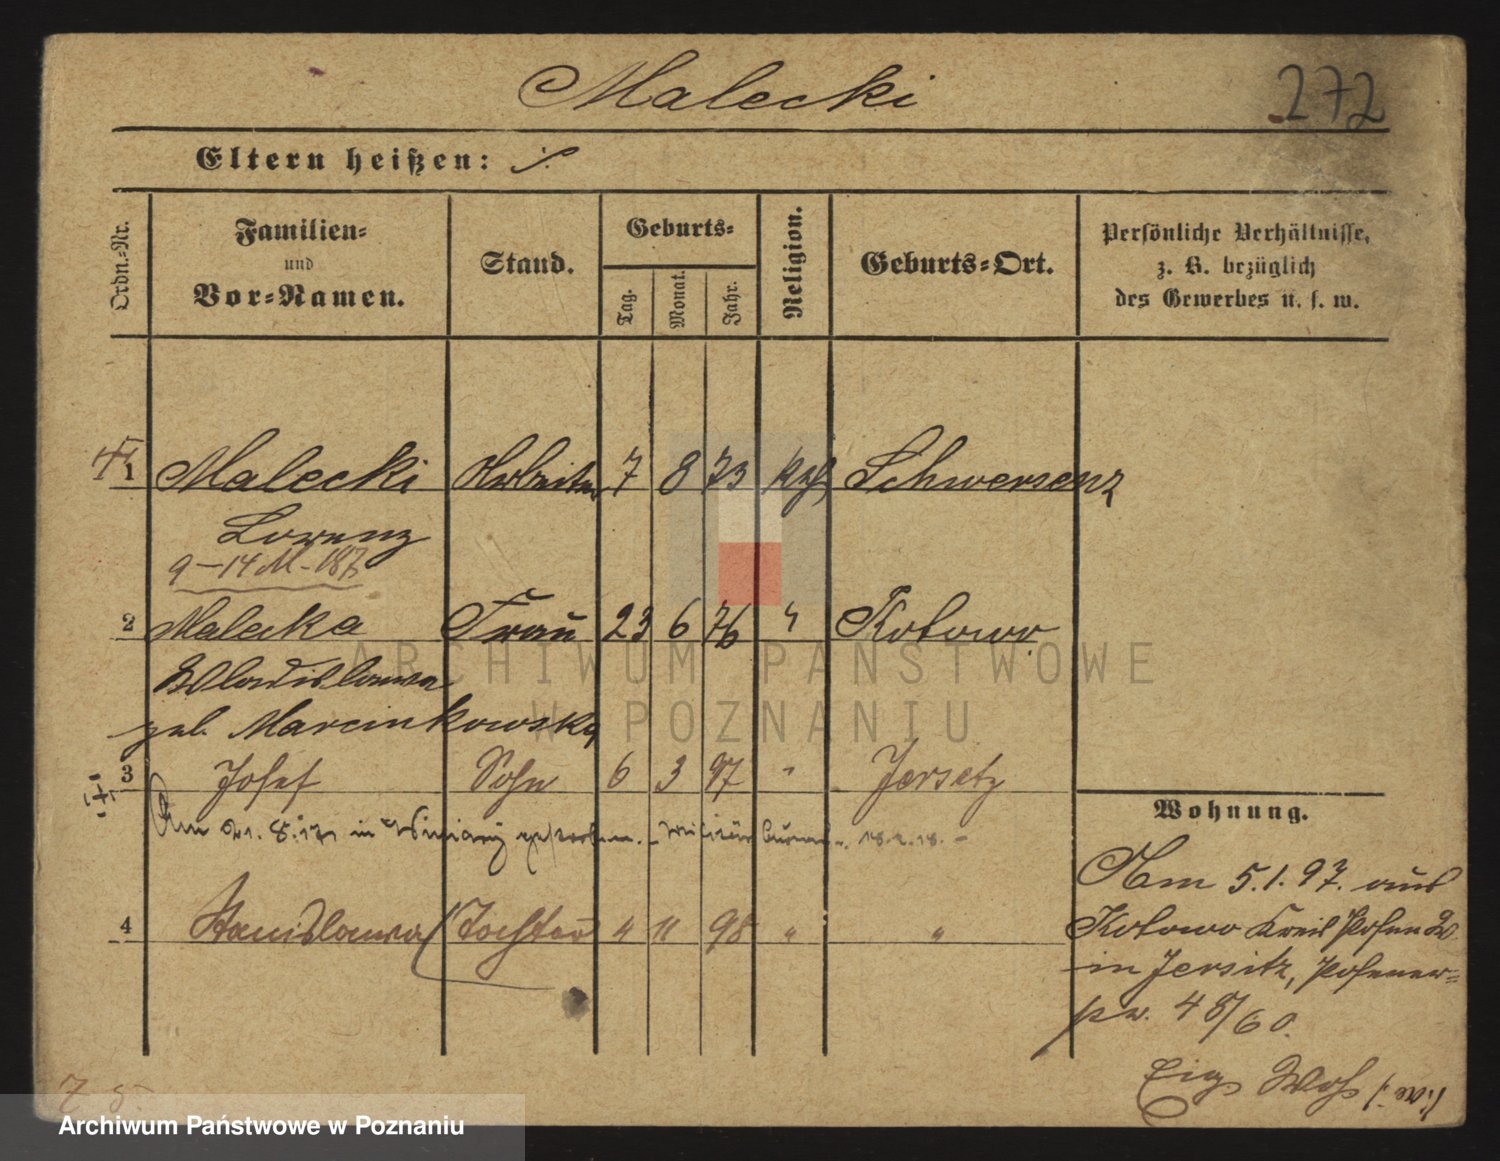 Malecki
272
Eltern heißen: ./.
Ordn.-Nr.
Familien-
und
Vor-Namen.
Stand.
Geburts-
Tag.
Monat.
Jahr.
Religion.
Geburts-Ort.
Persönliche Verhältnisse,
z. B. bezüglich
des Gewerbes u. s. w.
1 Malecki Arbeiter 7 8 73 kth Schwersenz
Lorenz
9-14 M-187
2 Malecka Frau 23 6 76 " Kotowo
Wladislawa
geb. Marcinkowska
3 Josef Sohn 6 3 97 " Jersitz
Am 21. 8. 17 in Winiary gestorben. - Militär 18.2.18. -
4 Stanislawa Tochter 4 11 98 " "
Wohnung.
Am 5.1.97. aus
Kotowo Kreis Posen W.
in Jersitz, Posener-
str. 48/60.
ARCHIWUM PAŃSTWOWE
W POZNANIU
Archiwum Państwowe w Poznaniu